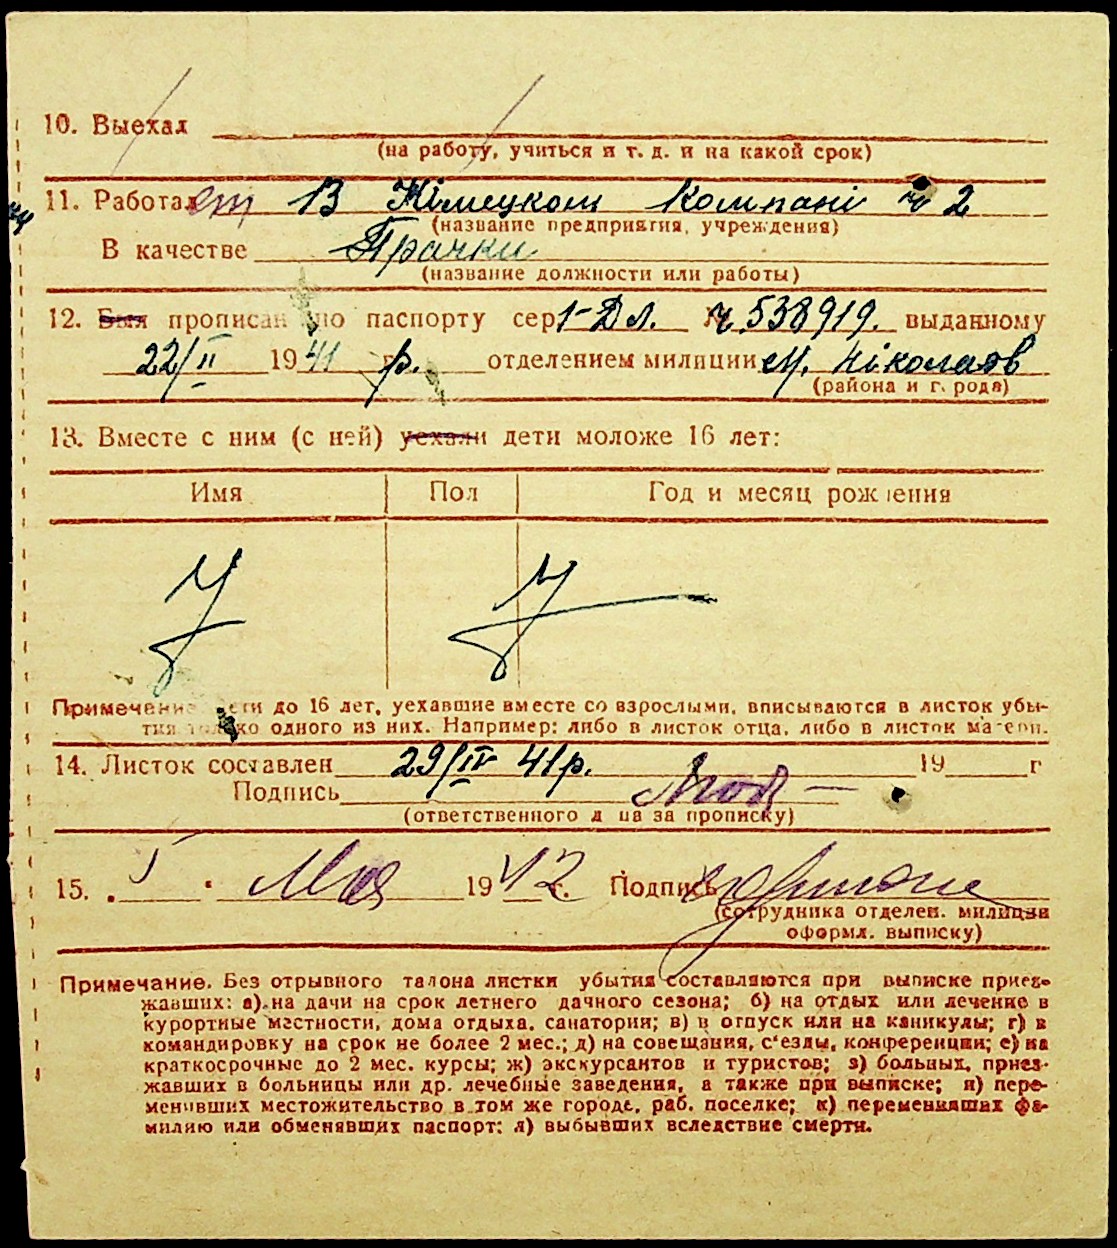 10. Выехал
(на работу, учиться и т. д. и на какой срок)
11. Работает В Німецком Компані № 2
(название предприятия, учреждения)
В качестве Прачки
(название должности или работы)
12. Был прописан по паспорту сер. 1-Дл. № 538919. выданному
22/II 1941 р. отделением милиции м. Ніколаов
(района и города)
13. Вместе с ним (с ней) уехали дети моложе 16 лет:
Имя Пол Год и месяц рождения
Примечание дети до 16 лет, уехавшие вместе со взрослыми, вписываются в листок убы-
тия только одного из них. Например: либо в листок отца, либо в листок матери.
14. Листок составлен 29/IV 41р. 19 г
Подпись
(ответственного лица за прописку)
15. " 1 " Мая 1942 г. Подпись
(сотрудника отделен. милиции
оформл. выписку)
Примечание. Без отрывного талона листки убытия составляются при выписке приез-
жавших: а) на дачи на срок летнего дачного сезона; б) на отдых или лечение в
курортные местности, дома отдыха, санатории; в) в отпуск или на каникулы; г) в
командировку на срок не более 2 мес.; д) на совещания, с'езды, конференции; е) на
краткосрочные до 2 мес. курсы; ж) экскурсантов и туристов; з) больных, приез-
жавших в больницы или др. лечебные заведения, а также при выписке; и) пере-
менивших местожительство в том же городе, раб. поселке; к) переменивших фа-
милию или обменявших паспорт; л) выбывших вследствие смерти.